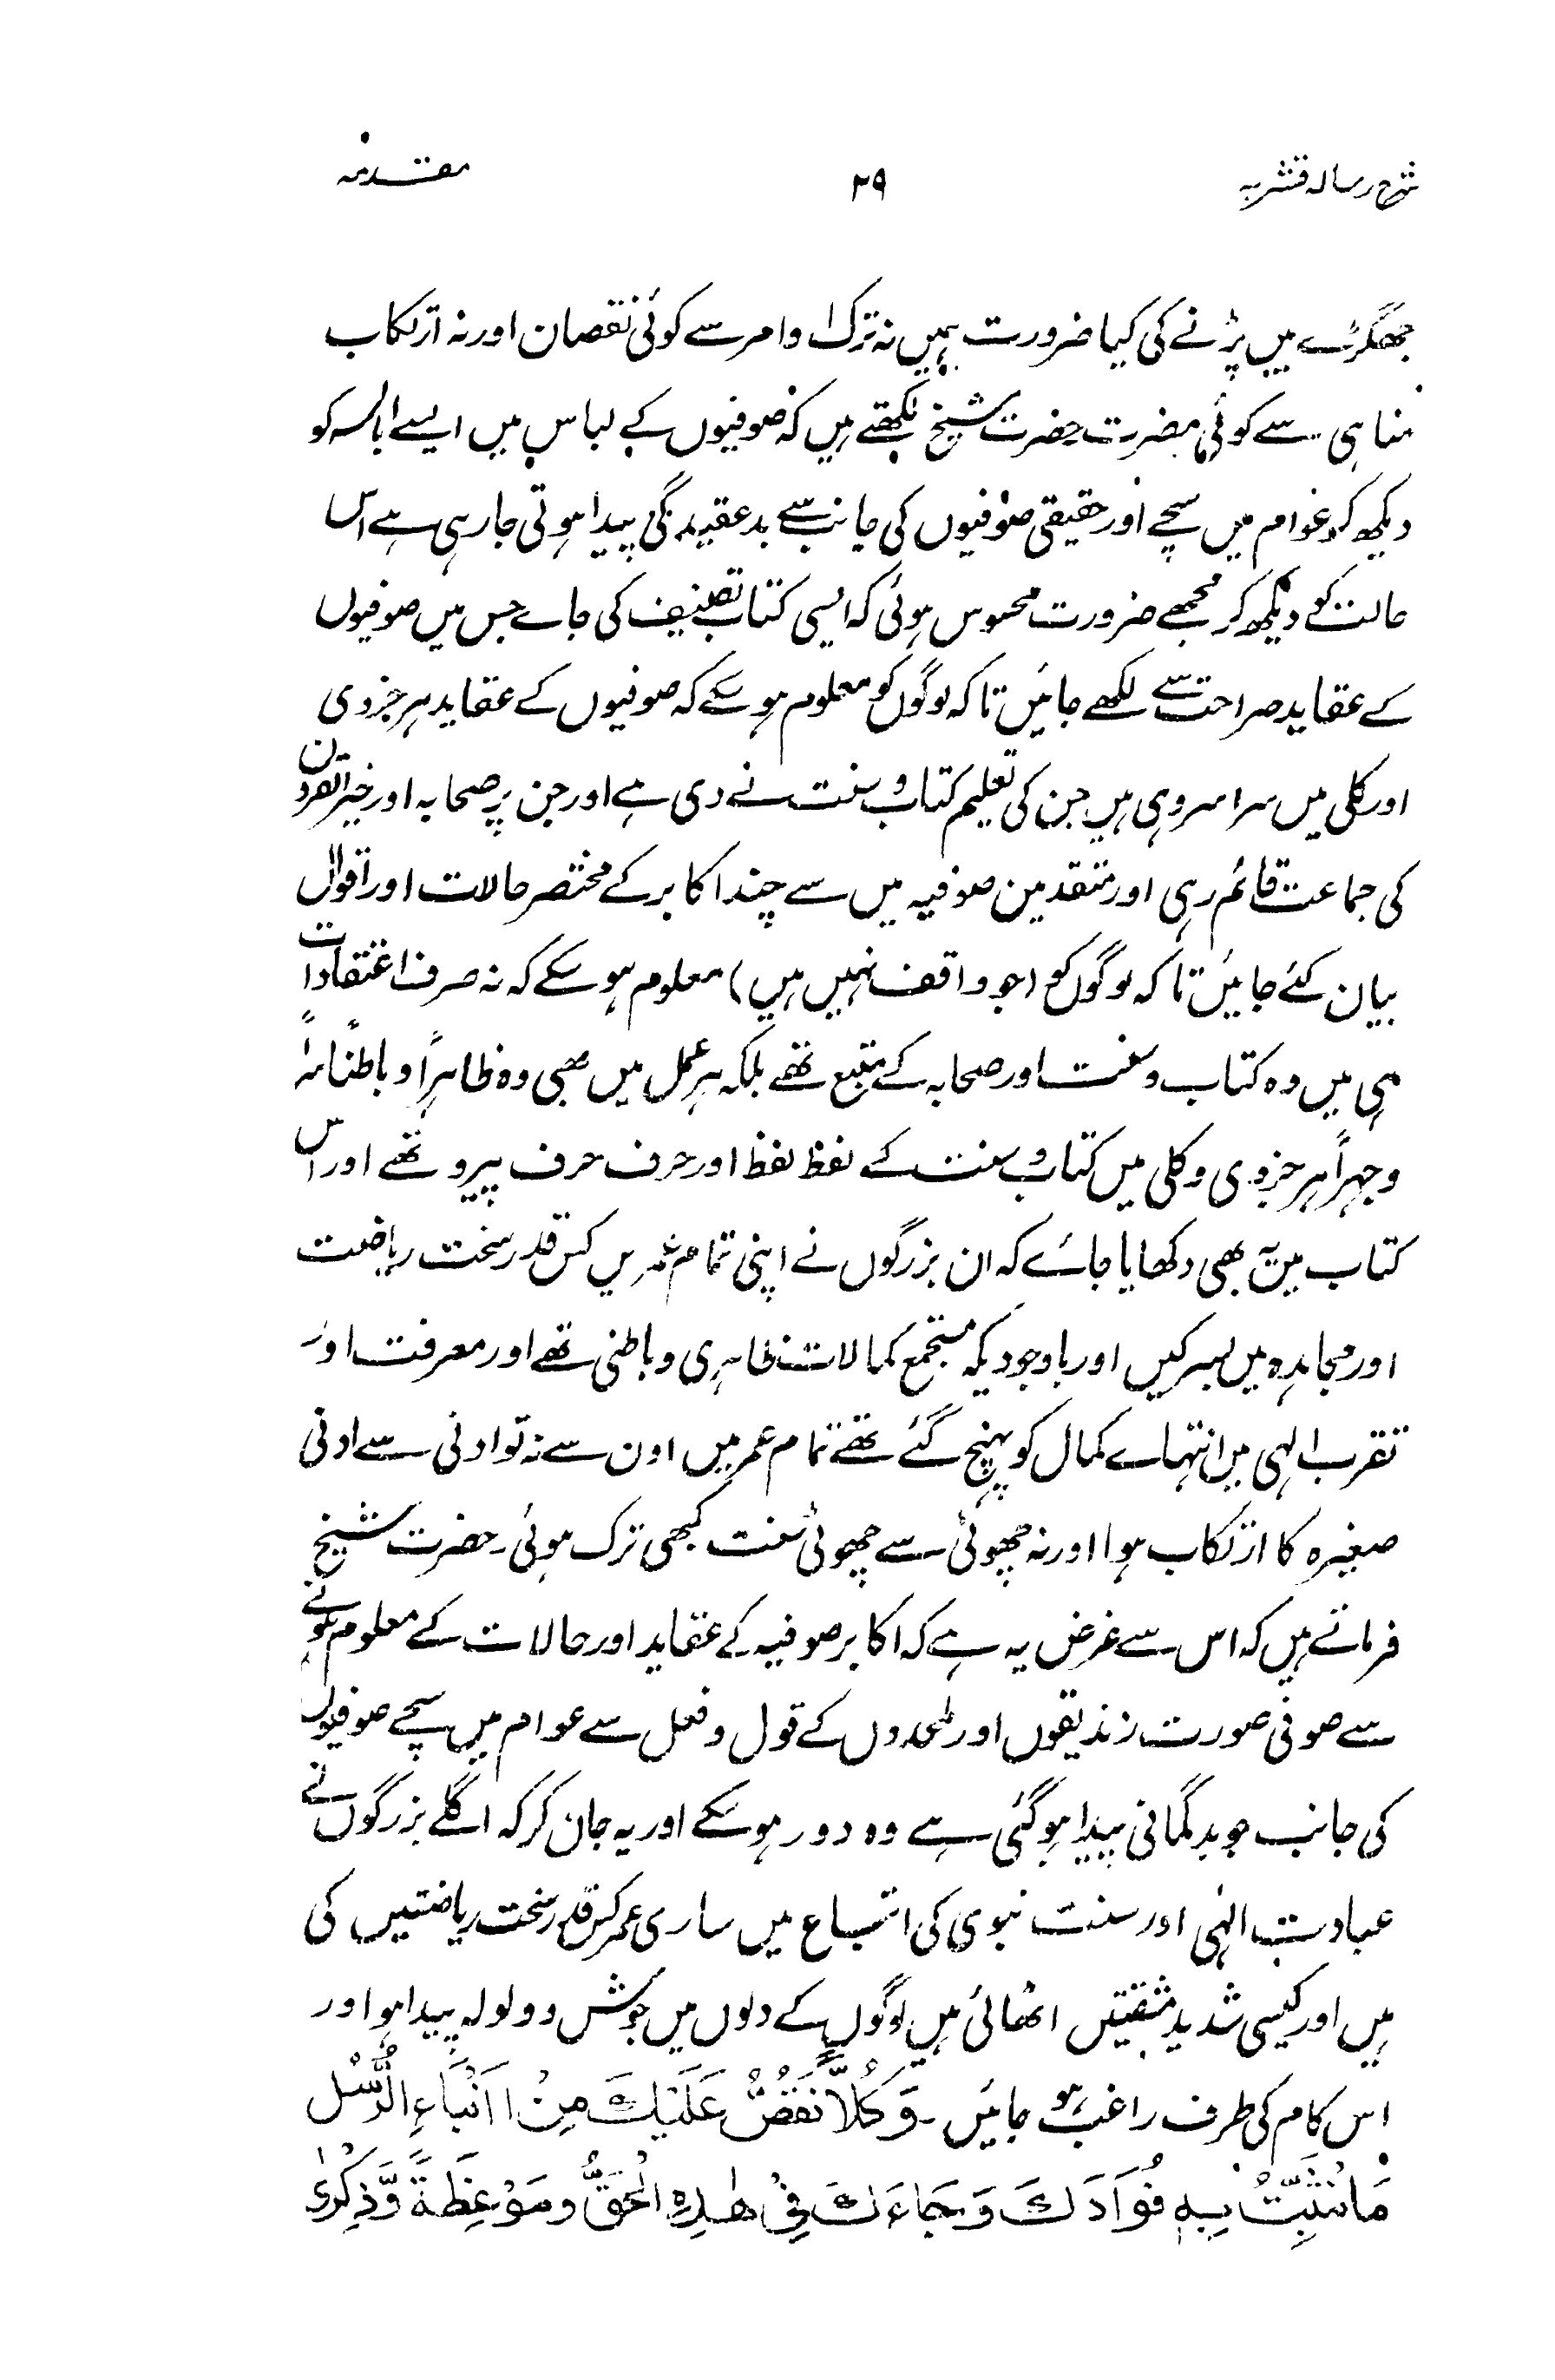 شرح رسالہ قشریہ ۲۹ مقدمہ
جھگڑے میں پڑنے کی کیا ضرورت ہمیں نہ ترک اوامر سے کوئی نقصان اور نہ ارتکاب
مناہی سے کوئی مضرت حضرت شیخ لکھتے ہیں کہ صوفیوں کے لباس میں ایسے ابالسہ کو
دیکھ کر عوام میں سچے اور حقیقی صوفیوں کی جانب سے بدعقیدگی پیدا ہوتی جارہی ہے اس
حالت کو دیکھ کر مجھے ضرورت محسوس ہوئی کہ ایسی کتاب تصنیف کی جاے جس میں صوفیوں
کے عقاید صراحت سے لکھے جائیں تاکہ لوگوں کو معلوم ہوسکے کہ صوفیوں کے عقاید ہر جزوی
اور کلی میں سراسر وہی ہیں جن کی تعلیم کتاب و سنت نے دی ہے اور جن پر صحابہ اور خیر القرون
کی جماعت قائم رہی اور متقدمین صوفیہ میں سے چند اکابر کے مختصر حالات اور اقوال
بیان کئے جائیں تاکہ لوگوں کو (جو واقف نہیں ہیں) معلوم ہوسکے کہ نہ صرف اعتقادات
ہی میں وہ کتاب و سنت اور صحابہ کے متبع تھے بلکہ ہر عمل میں بھی وہ ظاہراً و باطناً سراً
و جہراً ہر جزوی و کلی میں کتاب و سنت کے لفظ لفظ اور حرف حرف پیرو تھے اور اس
کتاب میں یہ بھی دکھایا جائے کہ ان بزرگوں نے اپنی تمام عمریں کس قدر سخت ریاضت
اور مجاہدہ میں بسر کیں اور باوجودیکہ مستجمع کمالات ظاہری و باطنی تھے اور معرفت اور
تقرب الہی میں انتہاے کمال کو پہنچ گئے تھے تمام عمر میں اون سے نہ تو ادنی سے ادنی
صغیرہ کا ارتکاب ہوا اور نہ چھوٹی سے چھوٹی سنت کبھی ترک ہوئی۔ حضرت شیخ
فرماتے ہیں کہ اس سے غرض یہ ہے کہ اکابر صوفیہ کے عقاید اور حالات کے معلوم ہونے
سے صوفی صورت زندیقوں اور ملحدوں کے قول و فعل سے عوام میں سچے صوفیوں
کی جانب جو بدگمانی پیدا ہوگئی ہے وہ دور ہوسکے اور یہ جان کر کہ اگلے بزرگوں نے
عبادت الہٰی اور سنت نبوی کی اتباع میں ساری عمر کس قدر سخت ریاضتیں کی
ہیں اور کیسی شدید مشقتیں اٹھائی ہیں لوگوں کے دلوں میں جوش و ولولہ پیدا ہو اور
اس کام کی طرف راغب ہو جائیں۔ وَكُلًّا نَّقُصُّ عَلَيْكَ مِنْ اَنْبَاءِ الرُّسُلِ
مَا نُثَبِّتُ بِهٖ فُوَادَكَ وَجَاءَكَ فِیْ هٰذِهِ الْحَقُّ وَمَوْعِظَةً وَّذِكْرٰی